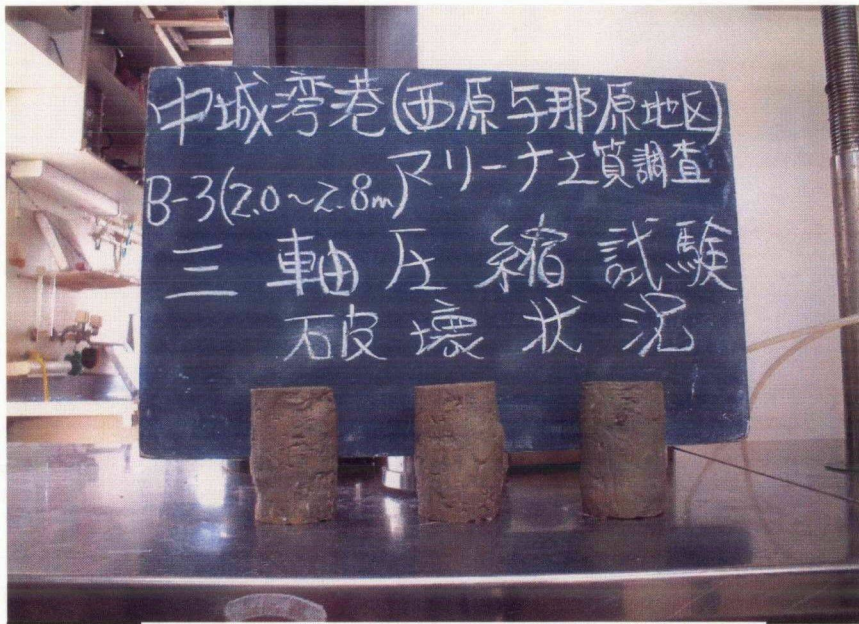 中城湾港(西原与那原地区)
マリーナ土質調査
B-3(2.0～2.8m)
三軸圧縮試験
破壊状況